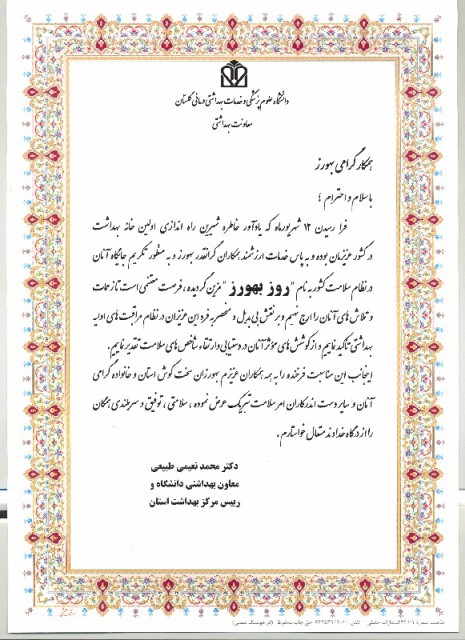 دانشگاه علوم پزشکی و خدمات بهداشتی درمانی گلستان
معاونت بهداشتی
همکار گرامی بهورز
با سلام و احترام ؛
فرا رسیدن ۱۲ شهریورماه که یادآور خاطره شیرین راه اندازی اولین خانه بهداشت
در کشور عزیزمان بوده و به پاس خدمات ارزشمند همکاران گرانقدر بهورز و به منظور تکریم جایگاه آنان
در نظام سلامت کشور به نام " روز بهورز " مزین گردیده ، فرصت مغتنمی است تا زحمات
و تلاش های آنان را ارج نهیم و بر نقش بی بدیل و منحصر به فرد این عزیزان در نظام مراقبت های اولیه
بهداشتی تاکید نماییم و از کوشش های مؤثر آنان در دستیابی و ارتقاء شاخص های سلامت تقدیر نماییم.
اینجانب این مناسبت فرخنده را به همه همکاران عزیزم بهورزان سخت کوش استان و خانواده گرامی
آنان و سایر دست اندرکاران امر سلامت تبریک عرض نموده ، سلامتی ، توفیق و سربلندی همگان
را از درگاه خداوند متعال خواستارم.
دکتر محمد نعیمی طبیعی
معاون بهداشتی دانشگاه و
رییس مرکز بهداشت استان